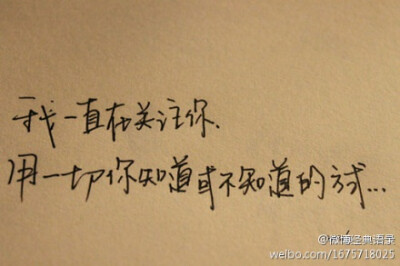 我一直在关注你.
用一切你知道或不知道的方式...
@微博经典语录
weibo.com/1675718025